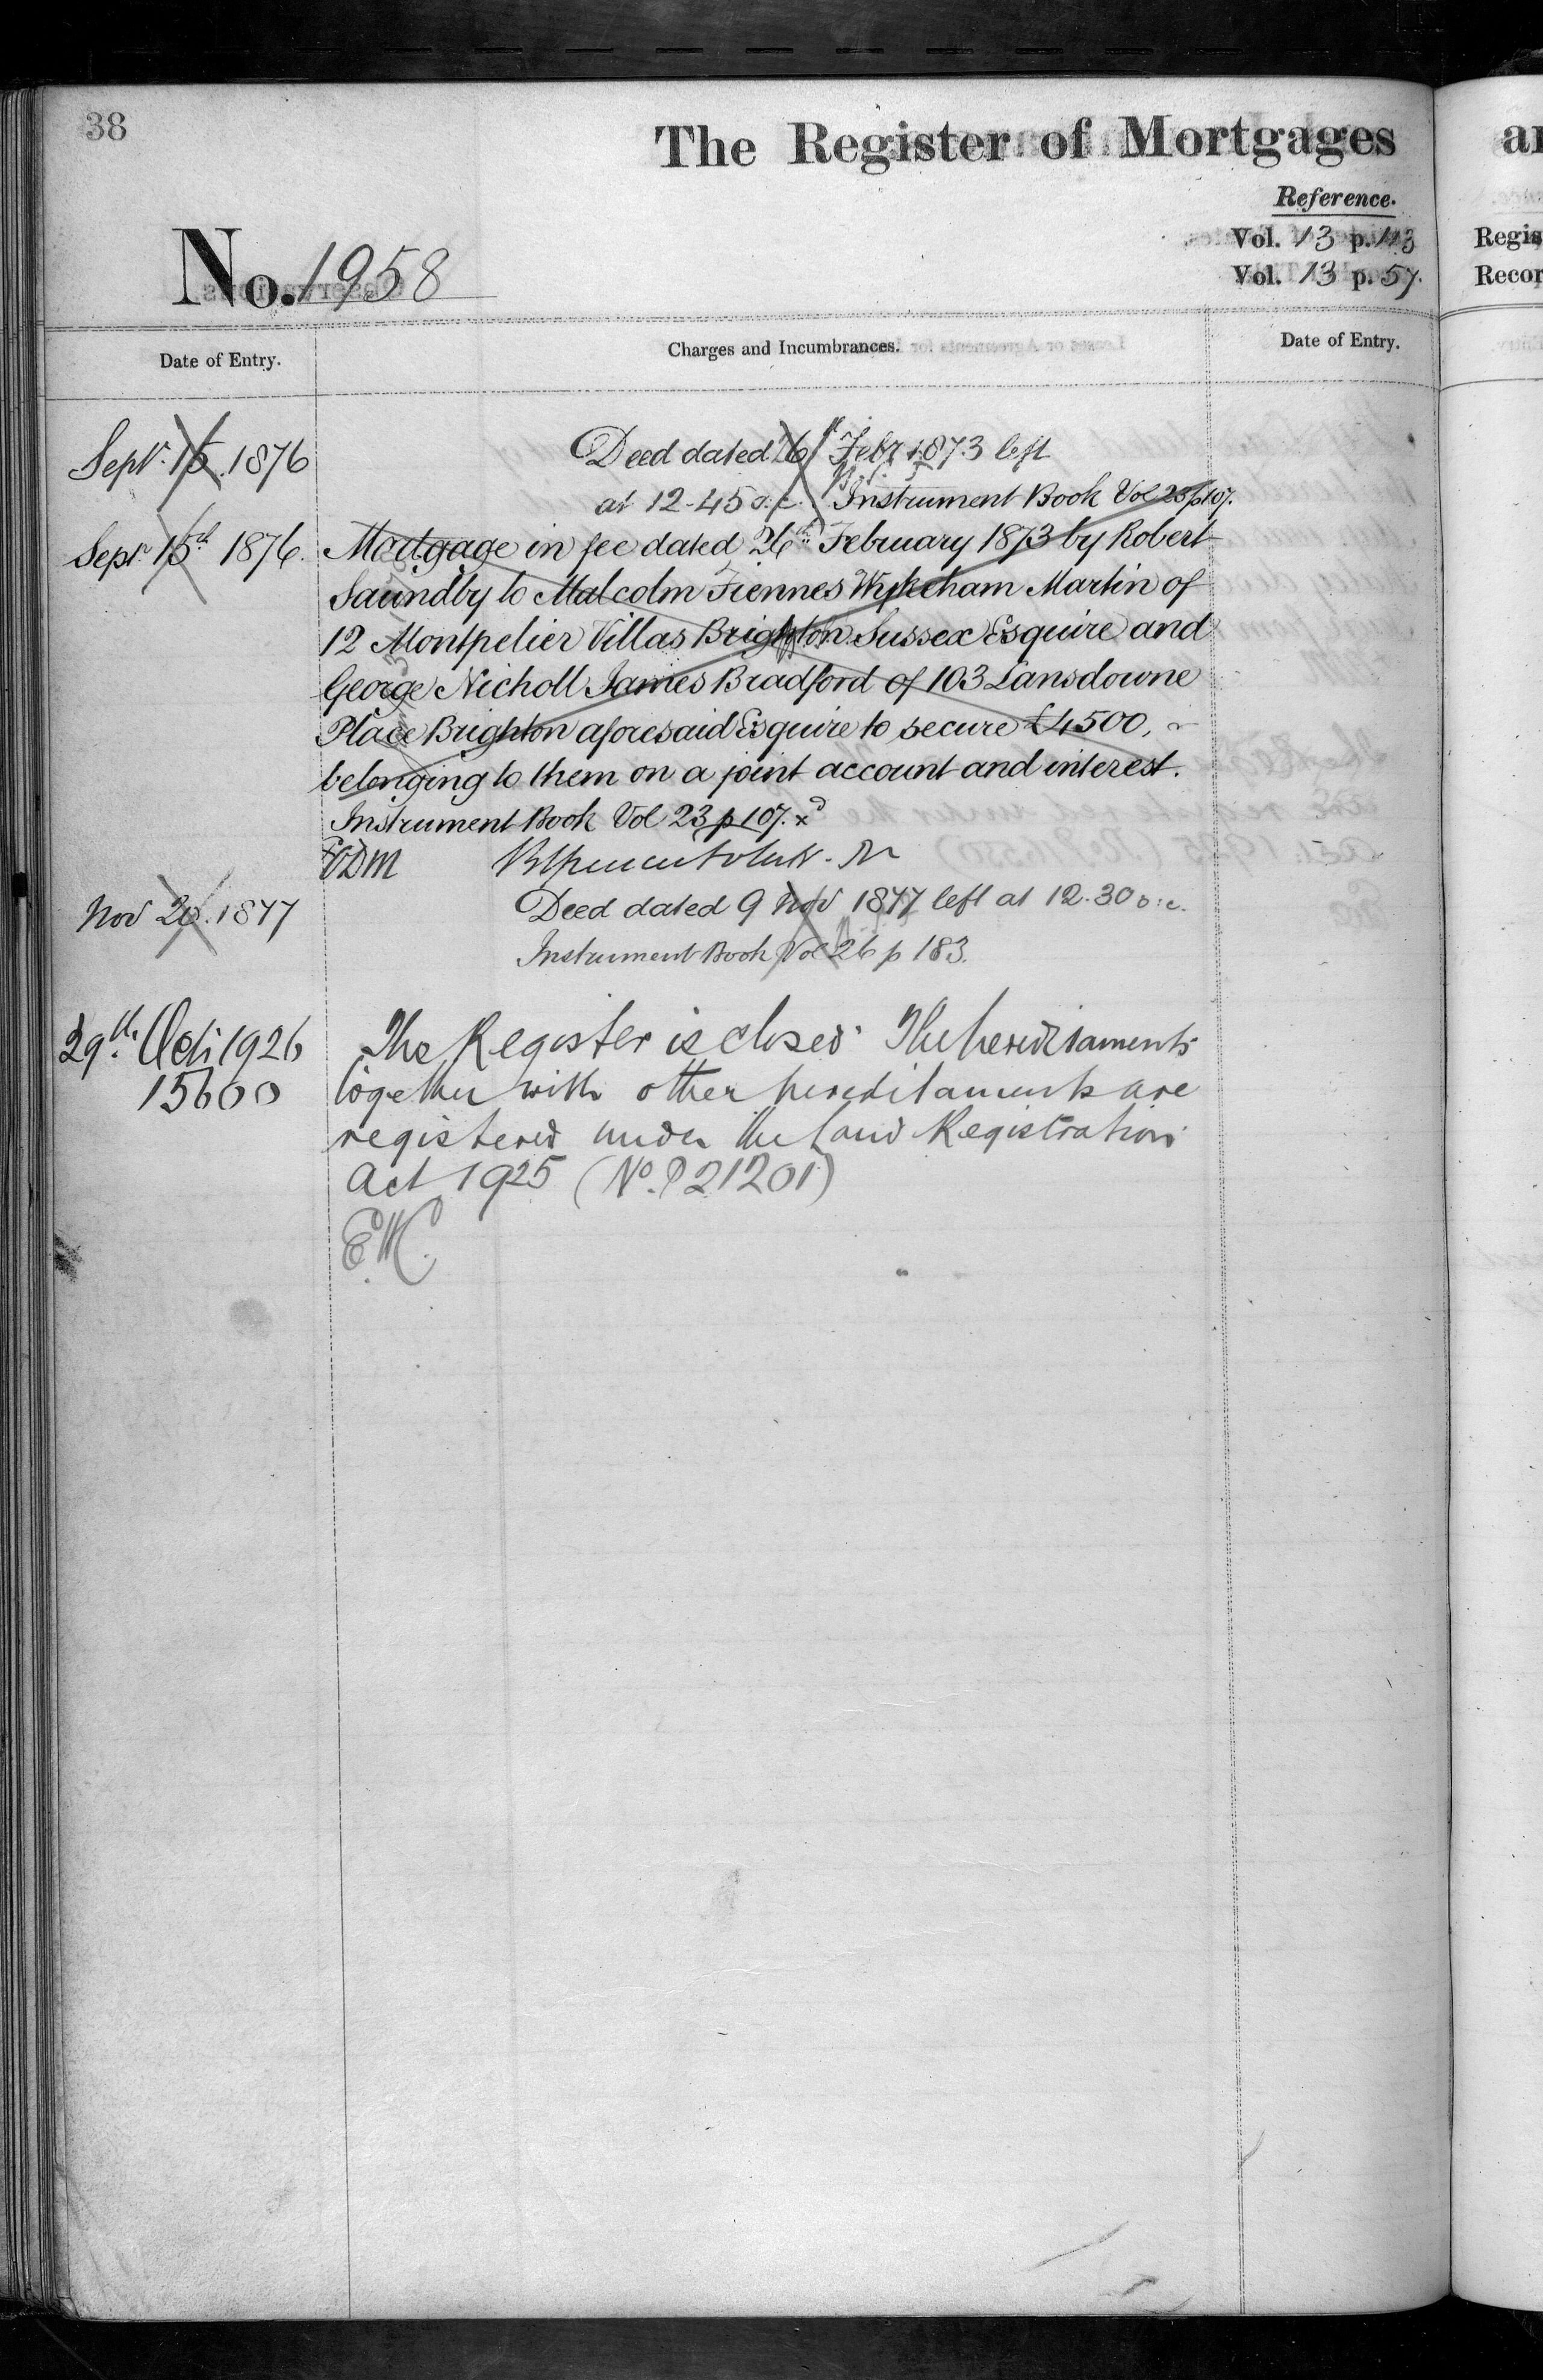 38
The Register of Mortgages
Reference.
Vol. 13 p. 113
Vol. 13 p. 57.
No. 1958
Date of Entry.
Charges and Incumbrances.
Date of Entry.
Sept. 15. 1876
Deed dated 26th Feby 1873 left
at 12-45 o.c. Instrument Book Vol 23 p 107.
Sept. 15th 1876.
Mortgage in fee dated 26th February 1873 by Robert
Saundby to Malcolm Fiennes Wykeham Martin of
12 Montpelier Villas Brighton Sussex Esquire and
George Nicholl James Bradford of 103 Lansdowne
Place Brighton aforesaid Esquire to secure £4500,
belonging to them on a joint account and interest.
Instrument Book Vol 23 p 107. xd
Nov 20. 1877
Deed dated 9 Nov 1877 left at 12.30 o.c.
Instrument Book Vol 26 p 183.
29th Oct. 1926
15600
The Register is closed. The hereditaments
together with other hereditaments are
registered under the Land Registration
Act 1925 (No. P21201)
Regis
Recor